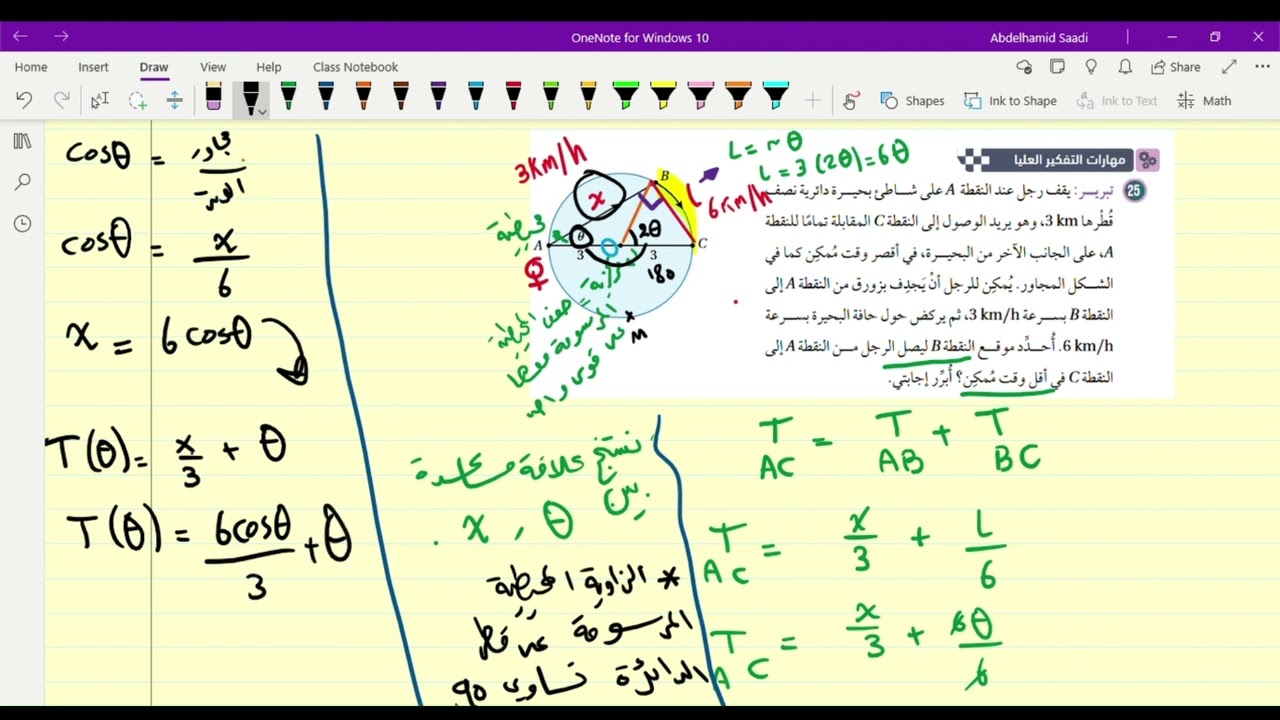 OneNote for Windows 10
Abdelhamid Saadi
Home Insert Draw View Help Class Notebook
Share
Shapes Ink to Shape Ink to Text Math
مهارات التفكير العليا
25 تبرير: يقف رجل عند النقطة A على شاطئ بحيرة دائرية نصف
قُطرها 3 km، وهو يريد الوصول إلى النقطة C المقابلة تمامًا للنقطة
A، على الجانب الآخر من البحيرة، في أقصر وقت مُمكِن كما في
الشكل المجاور. يُمكِن للرجل أنْ يَجدِف بزورق من النقطة A إلى
النقطة B بسرعة 3 km/h، ثم يركض حول حافة البحيرة بسرعة
6 km/h. أُحدِّد موقع النقطة B ليصل الرجل من النقطة A إلى
النقطة C في أقل وقت مُمكِن؟ أُبرِّر إجابتي.
L = rθ
L = 3(2θ) = 6θ
3Km/h
B
x
L
6Km/h
محيطية
θ
2θ
A
O
C
3
3
180
M
cosθ = المجاور / الوتر
cosθ = x / 6
x = 6cosθ
T(θ) = x/3 + θ
T(θ) = 6cosθ / 3 + θ
نستنتج علاقة مساعدة
بين
x , θ
* الزاوية المحيطية
المرسومة على قطر
الدائرة تساوي 90
T AC = T AB + T BC
T AC = x/3 + L/6
T AC = x/3 + 6θ/6